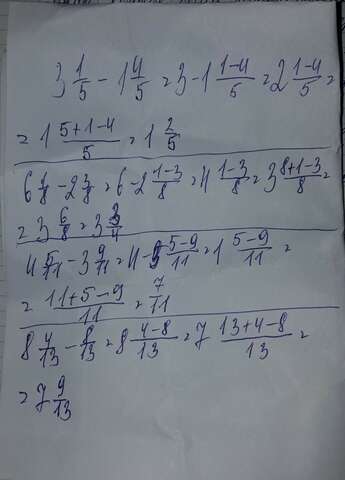 3 1/5 - 1 4/5 = 3-1 1-4/5 = 2 1-4/5 =
= 1 5+1-4/5 = 1 2/5
6 1/8 - 2 3/8 = 6-2 1-3/8 = 4 1-3/8 = 3 8+1-3/8 =
= 3 6/8 = 3 3/4
4 5/11 - 3 9/11 = 4-3 5-9/11 = 1 5-9/11 =
= 11+5-9/11 = 7/11
8 4/13 - 8/13 = 8 4-8/13 = 7 13+4-8/13 =
= 7 9/13